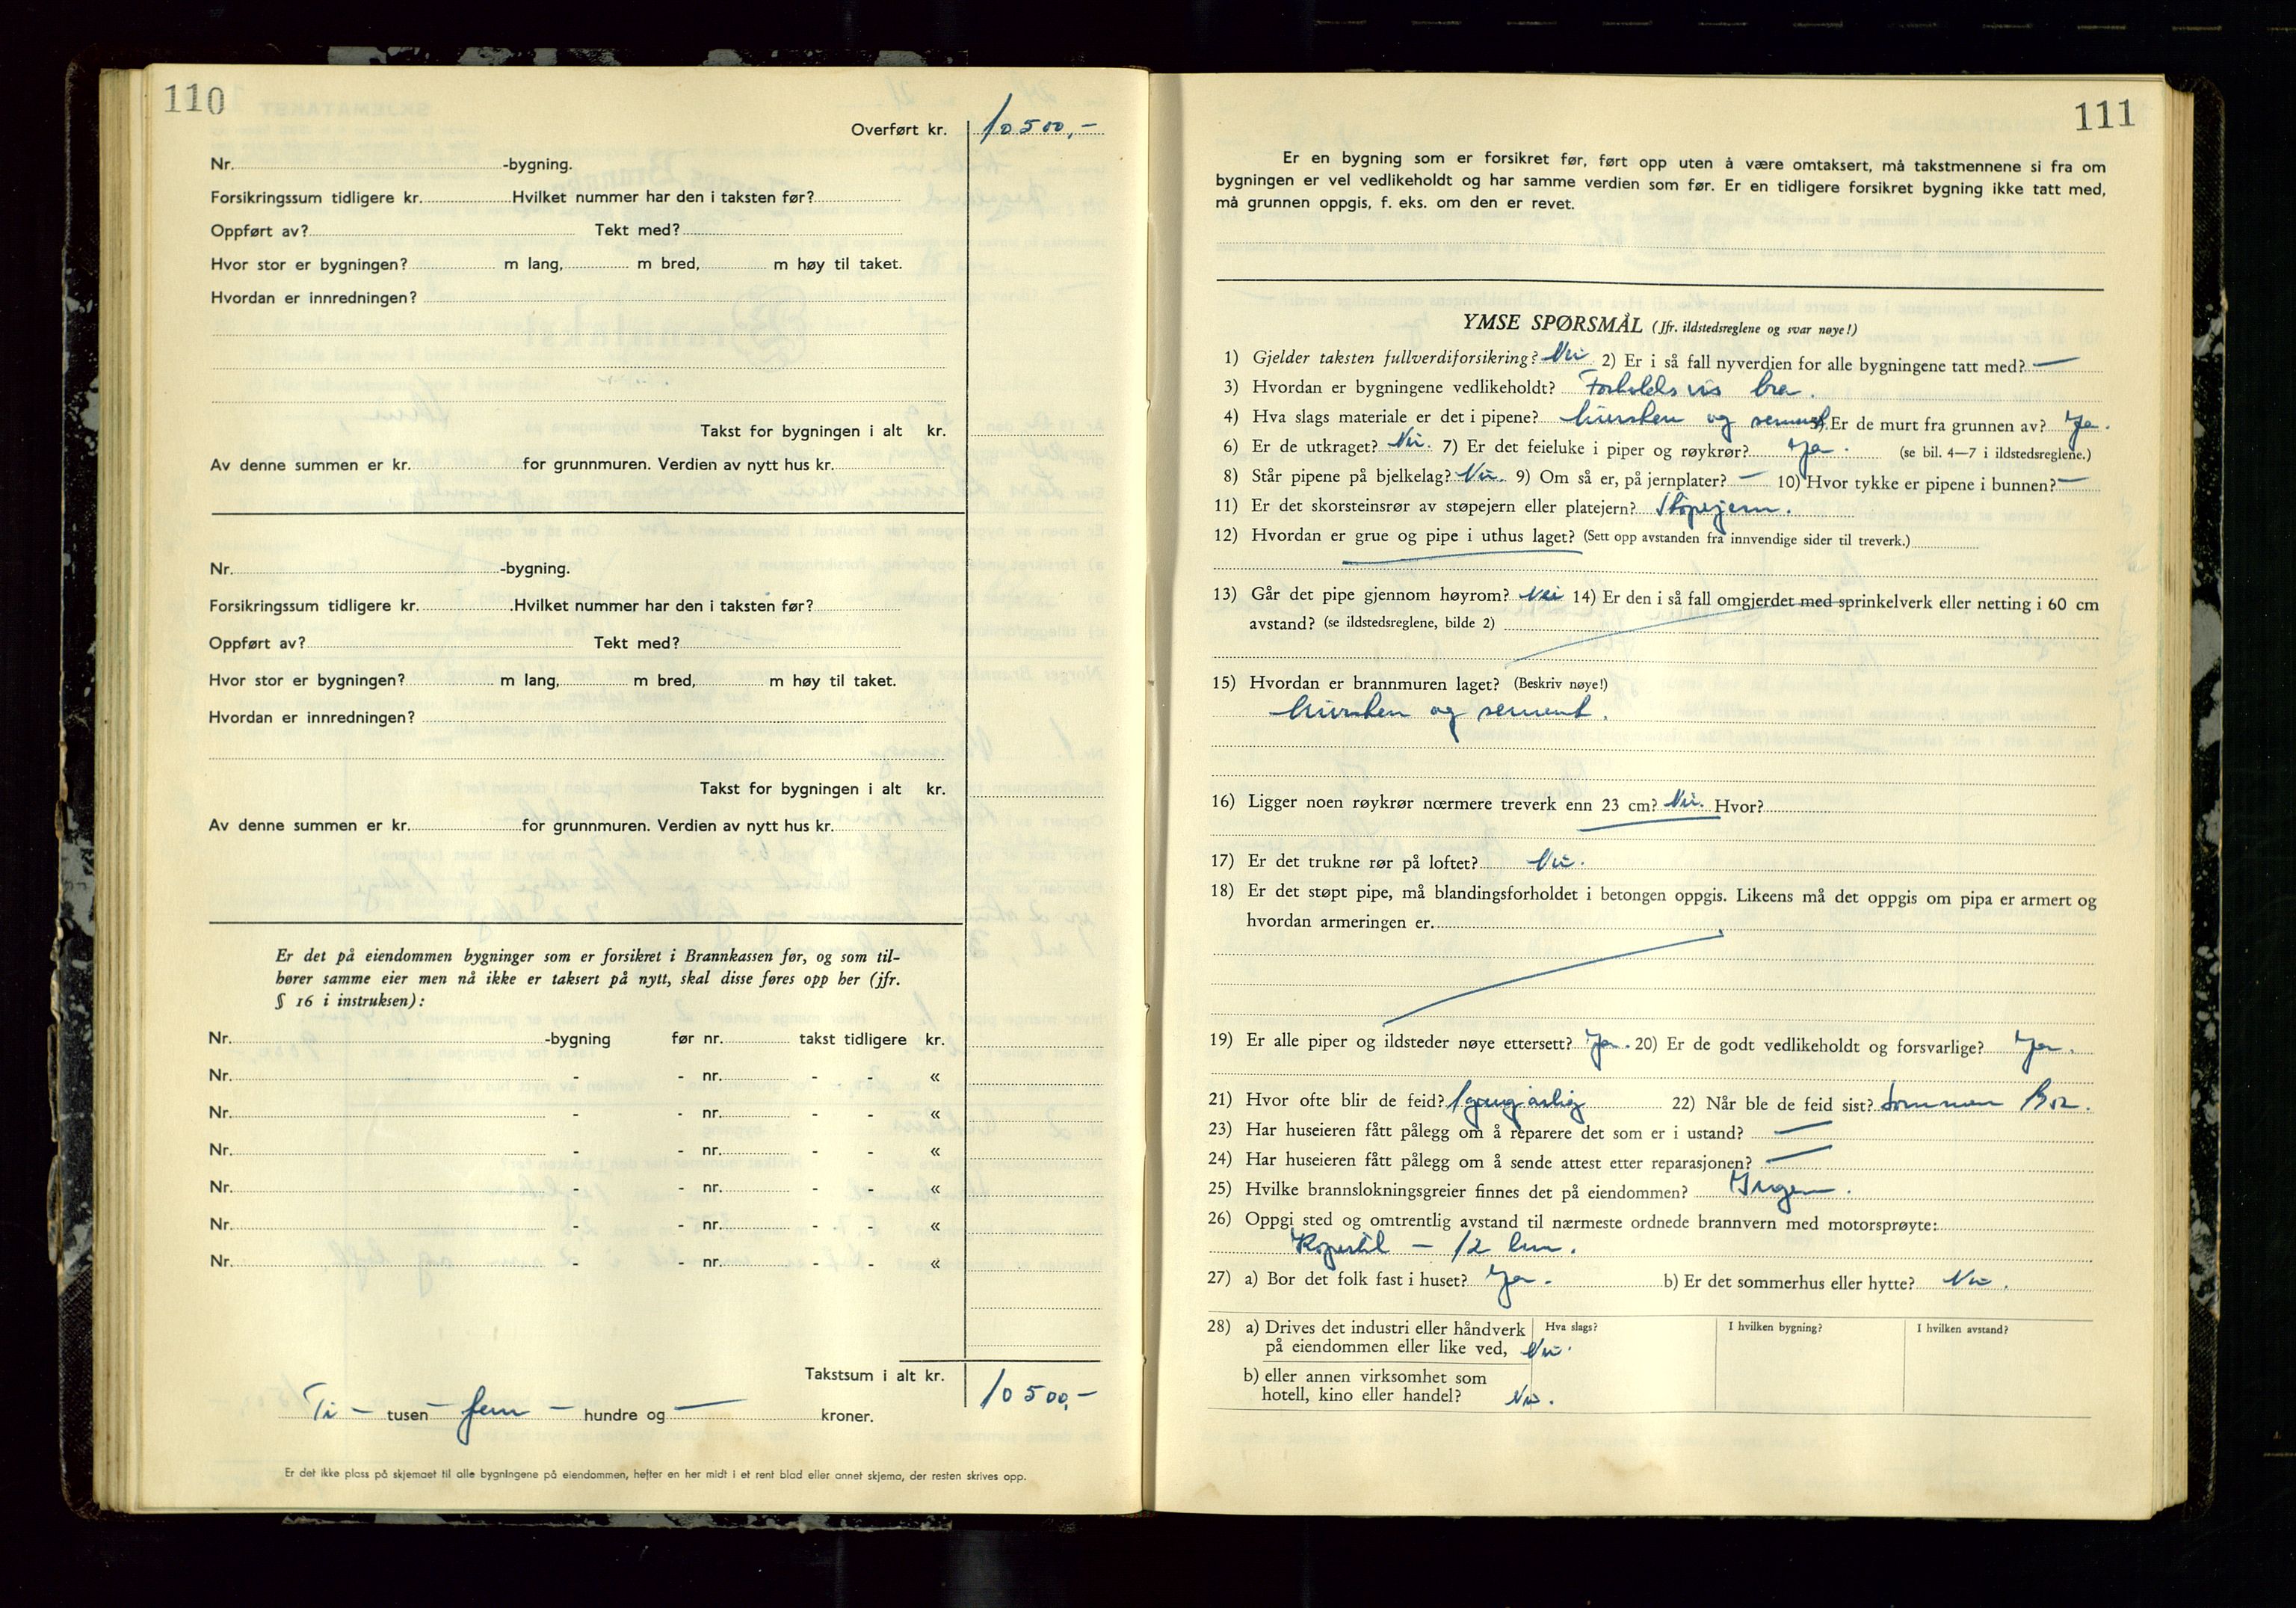 110
Overført kr. 10500,-
Nr. -bygning.
Forsikringssum tidligere kr. Hvilket nummer har den i taksten før?
Oppført av? Tekt med?
Hvor stor er bygningen? m lang, m bred, m høy til taket.
Hvordan er innredningen?
Takst for bygningen i alt kr.
Av denne summen er kr. for grunnmuren. Verdien av nytt hus kr.
Nr. -bygning.
Forsikringssum tidligere kr. Hvilket nummer har den i taksten før?
Oppført av? Tekt med?
Hvor stor er bygningen? m lang, m bred, m høy til taket.
Hvordan er innredningen?
Takst for bygningen i alt kr.
Av denne summen er kr. for grunnmuren. Verdien av nytt hus kr.
Er det på eiendommen bygninger som er forsikret i Brannkassen før, og som til-
hører samme eier men nå ikke er taksert på nytt, skal disse føres opp her (jfr.
§ 16 i instruksen):
Nr. -bygning før nr. takst tidligere kr.
Nr. - - nr. - - «
Nr. - - nr. - - «
Nr. - - nr. - - «
Nr. - - nr. - - «
Nr. - - nr. - - «
Nr. - - nr. - - «
Takstsum i alt kr. 10500,-
Ti - tusen fem - hundre og — kroner.
Er det ikke plass på skjemaet til alle bygningene på eiendommen, hefter en her midt i et rent blad eller annet skjema, der resten skrives opp.
111
Er en bygning som er forsikret før, ført opp uten å være omtaksert, må takstmennene si fra om
bygningen er vel vedlikeholdt og har samme verdien som før. Er en tidligere forsikret bygning ikke tatt med,
må grunnen oppgis, f. eks. om den er revet.
YMSE SPØRSMÅL (Jfr. ildstedsreglene og svar nøye!)
1) Gjelder taksten fullverdiforsikring? Nei 2) Er i så fall nyverdien for alle bygningene tatt med? —
3) Hvordan er bygningene vedlikeholdt? Forholdsvis bra.
4) Hva slags materiale er det i pipene? Mursten og sement 5) Er de murt fra grunnen av? Ja.
6) Er de utkraget? Nei. 7) Er det feieluke i piper og røykrør? Ja. (se bil. 4—7 i ildstedsreglene.)
8) Står pipene på bjelkelag? Nei. 9) Om så er, på jernplater? — 10) Hvor tykke er pipene i bunnen? —
11) Er det skorsteinsrør av støpejern eller platejern? Støpejern.
12) Hvordan er grue og pipe i uthus laget? (Sett opp avstanden fra innvendige sider til treverk.)
13) Går det pipe gjennom høyrom? Nei 14) Er den i så fall omgjerdet med sprinkelverk eller netting i 60 cm
avstand? (se ildstedsreglene, bilde 2)
15) Hvordan er brannmuren laget? (Beskriv nøye!)
Mursten og sement.
16) Ligger noen røykrør nærmere treverk enn 23 cm? Nei. Hvor?
17) Er det trukne rør på loftet? Nei.
18) Er det støpt pipe, må blandingsforholdet i betongen oppgis. Likeens må det oppgis om pipa er armert og
hvordan armeringen er.
19) Er alle piper og ildsteder nøye ettersett? Ja. 20) Er de godt vedlikeholdt og forsvarlige? Ja.
21) Hvor ofte blir de feid? 1 gang årlig 22) Når ble de feid sist? Sommeren
23) Har huseieren fått pålegg om å reparere det som er i ustand? —
24) Har huseieren fått pålegg om å sende attest etter reparasjonen? —
25) Hvilke brannslokningsgreier finnes det på eiendommen? Ingen.
26) Oppgi sted og omtrentlig avstand til nærmeste ordnede brannvern med motorsprøyte:
- 12 km.
27) a) Bor det folk fast i huset? Ja. b) Er det sommerhus eller hytte? Nei.
28) a) Drives det industri eller håndverk Hva slags? I hvilken bygning? I hvilken avstand?
på eiendommen eller like ved, Nei.
b) eller annen virksomhet som
hotell, kino eller handel? Nei.